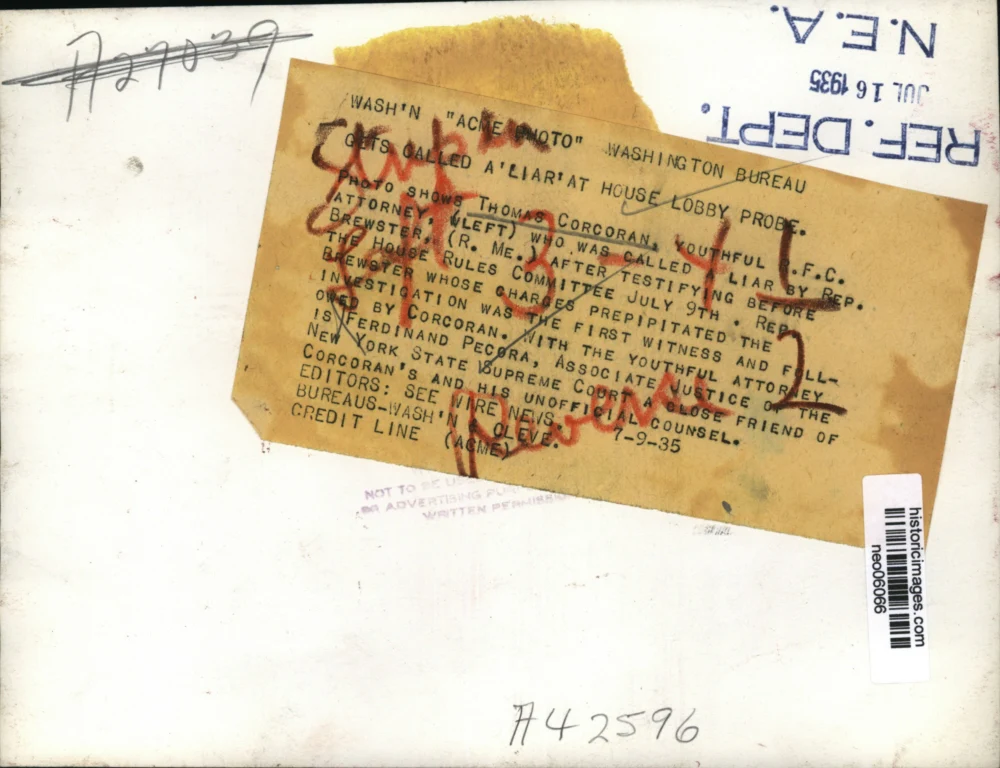 A27039
N.E.A.
JUL 16 1935
REF. DEPT.
WASH'N "ACME PHOTO" WASHINGTON BUREAU
GETS CALLED A 'LIAR' AT HOUSE LOBBY PROBE.
PHOTO SHOWS THOMAS CORCORAN, YOUTHFUL .F.C.
ATTORNEY, (LEFT) WHO WAS CALLED LIAR BY REP.
BREWSTER, (R. ME.) AFTER TESTIFYING BEFORE
THE HOUSE RULES COMMITTEE JULY 9TH. REP.
BREWSTER WHOSE CHARGES PREPIPITATED THE
INVESTIGATION WAS THE FIRST WITNESS AND FOLL-
OWED BY CORCORAN. WITH THE YOUTHFUL ATTORNEY
IS FERDINAND PECORA, ASSOCIATE JUSTICE OF THE
NEW YORK STATE SUPREME COURT A CLOSE FRIEND OF
CORCORAN'S AND HIS UNOFFICIAL COUNSEL.
EDITORS: SEE WIRE NEWS.
BUREAUS-WASH'N & CLEVE. 7-9-35
CREDIT LINE (ACME)
3 - 4 1/2
Reverse
NOT TO BE
OR ADVERTISING
WRITTEN PERMISSION
historicimages.com
neo06066
A42596